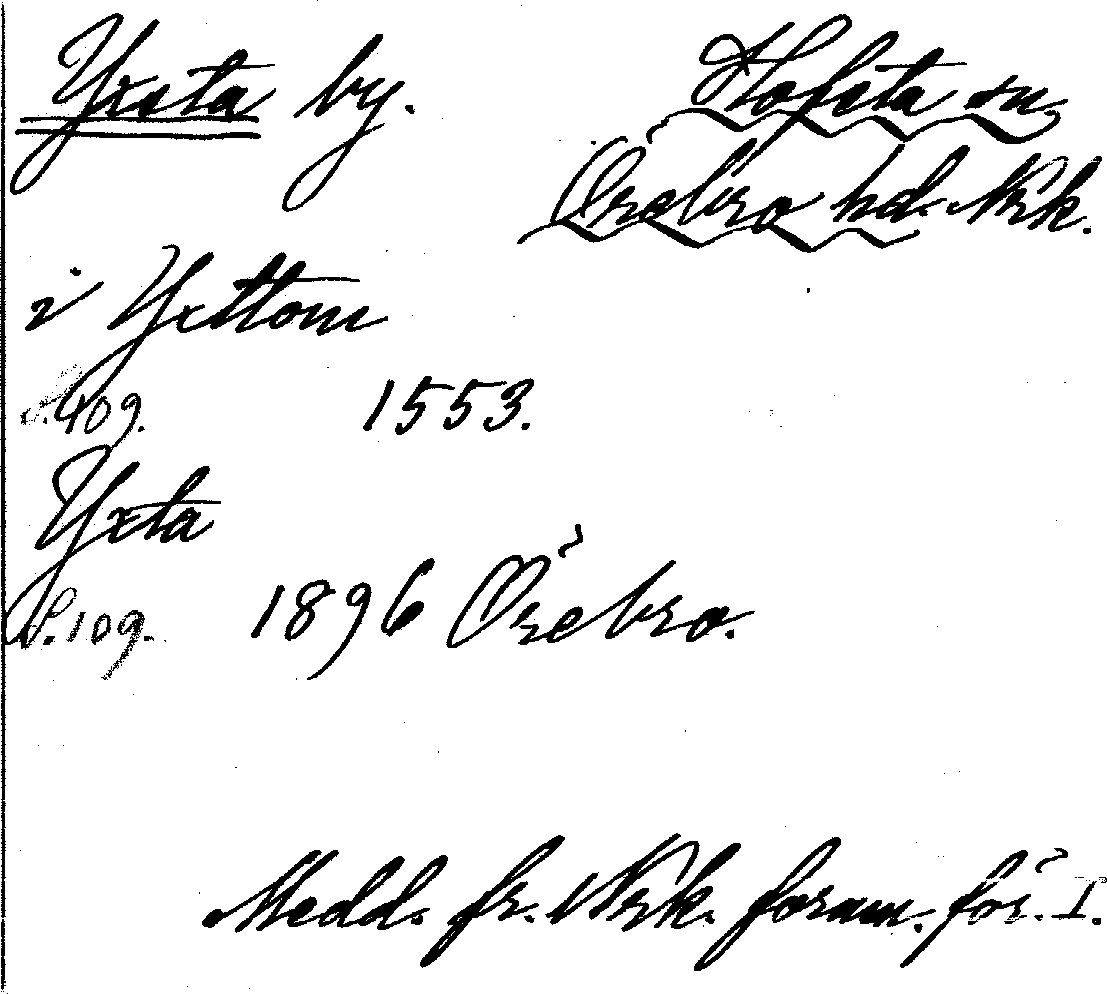 Yxsta by. Hofsta sn,
Örebro hd. Nrk.
i Yxttom
S. 109. 1553.
Yxta
S. 109. 1896 Örebro.
Medd. fr. Nrk. fornm. för. I.